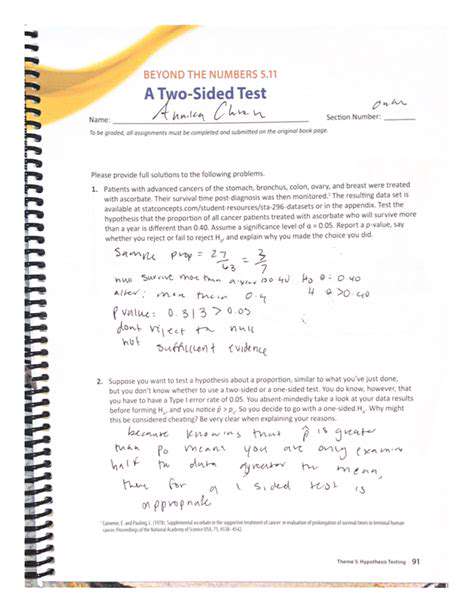 BEYOND THE NUMBERS 5.11
A Two-Sided Test
Name: Annika Section Number:
To be graded, all assignments must be completed and submitted on the original book page.
Please provide full solutions to the following problems.
1. Patients with advanced cancers of the stomach, bronchus, colon, ovary, and breast were treated
with ascorbate. Their survival time post-diagnosis was then monitored.¹ The resulting data set is
available at statconcepts.com/student-resources/sta-296-datasets or in the appendix. Test the
hypothesis that the proportion of all cancer patients treated with ascorbate who will survive more
than a year is different than 0.40. Assume a significance level of α = 0.05. Report a p-value, say
whether you reject or fail to reject H₀, and explain why you made the choice you did.
Sample prop = 27/63 = 3/7
null survive more than a year is 0.40 H₀ θ = 0.40
alter: more than 0.4 θ > 0.40
p value: 0.313 > 0.05
dont reject the null
not sufficient evidence
2. Suppose you want to test a hypothesis about a proportion, similar to what you've just done,
but you don't know whether to use a two-sided or a one-sided test. You do know, however, that
you have to have a Type I error rate of 0.05. You absent-mindedly take a look at your data results
before forming Hₐ, and you notice p̂ > p₀. So you decide to go with a one-sided Hₐ. Why might
this be considered cheating? Be very clear when explaining your reasons.
because knowing that p̂ is greater
than po means you are only
half the data the mean,
there for a 1 sided test is
appropriate
Cameron, E. and Pauling, L. (1978). Supplemental ascorbate in the supportive treatment of cancer: re-evaluation of prolongation of survival times in terminal human
cancer. Proceedings of the National Academy of Science USA, 75, 4538-4542.
Theme 5: Hypothesis Testing 91